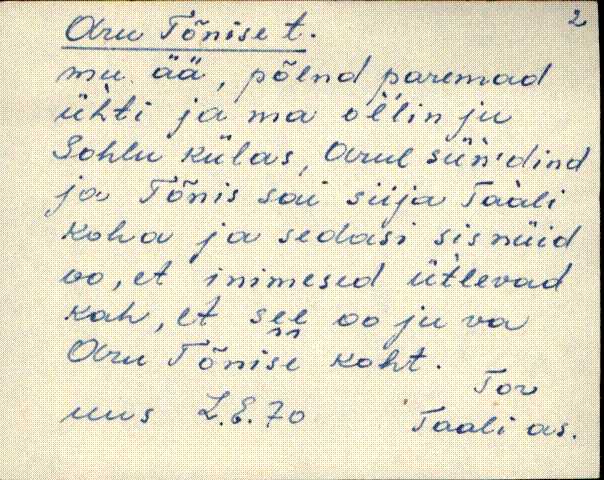 2
Aru Tõnise t.
mu ää, põlnd paremad
ühti ja ma ollin ju
Sohlu külas, Arul sün'dind
ja Tõnis sai siija Taali
koha ja sedasi sis nüid
oo, et inimesed ütlevad
kah, et see oo ju va
Aru Tõnise koht.
Tor
uus L.E.70 Taali as.